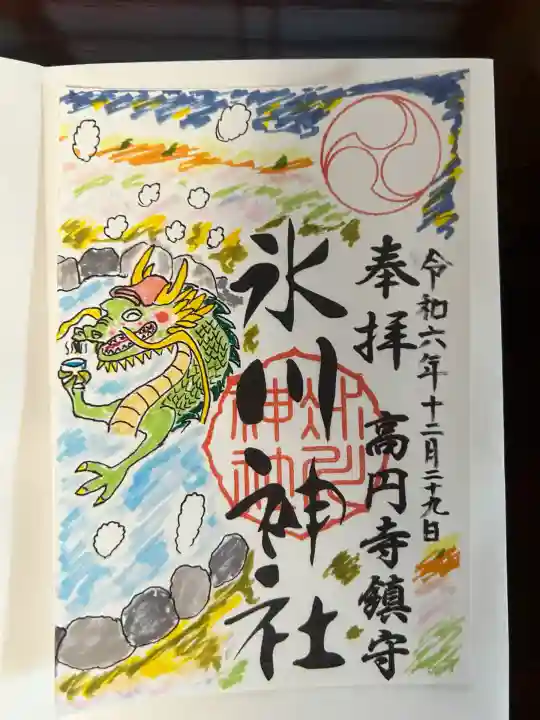 令和六年十二月二十九日
奉拝 高円寺鎮守
氷川神社